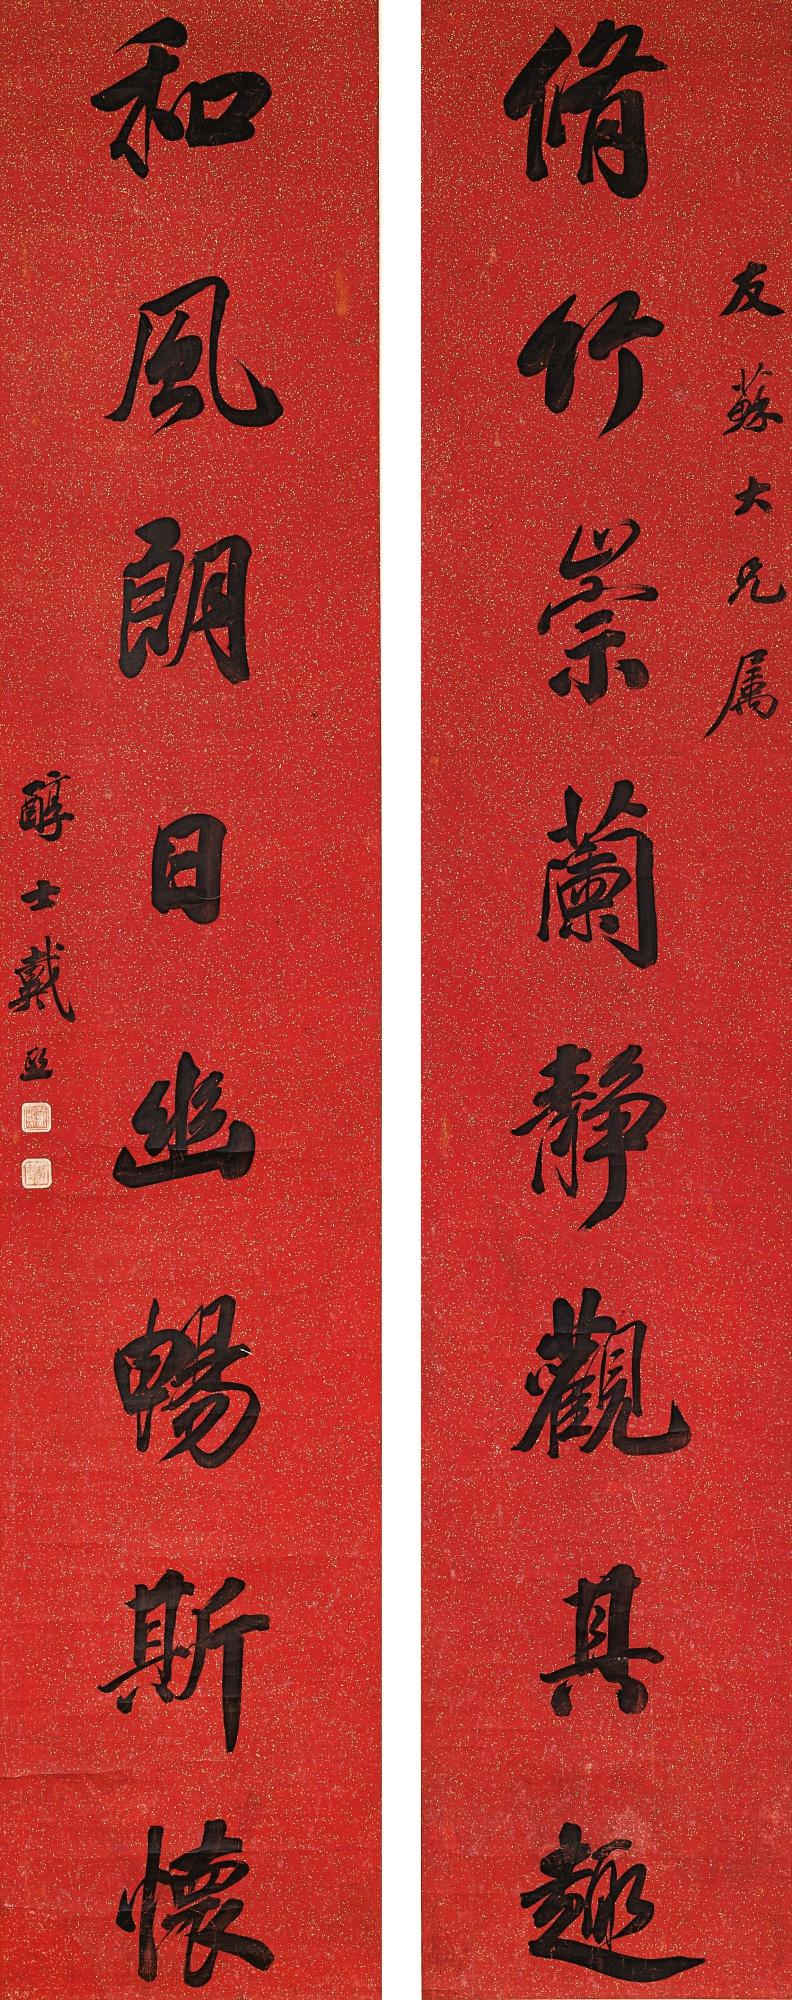 友蘇大兄屬
脩竹崇蘭靜觀其趣
和風朗日幽暢斯懷
醇士戴熙